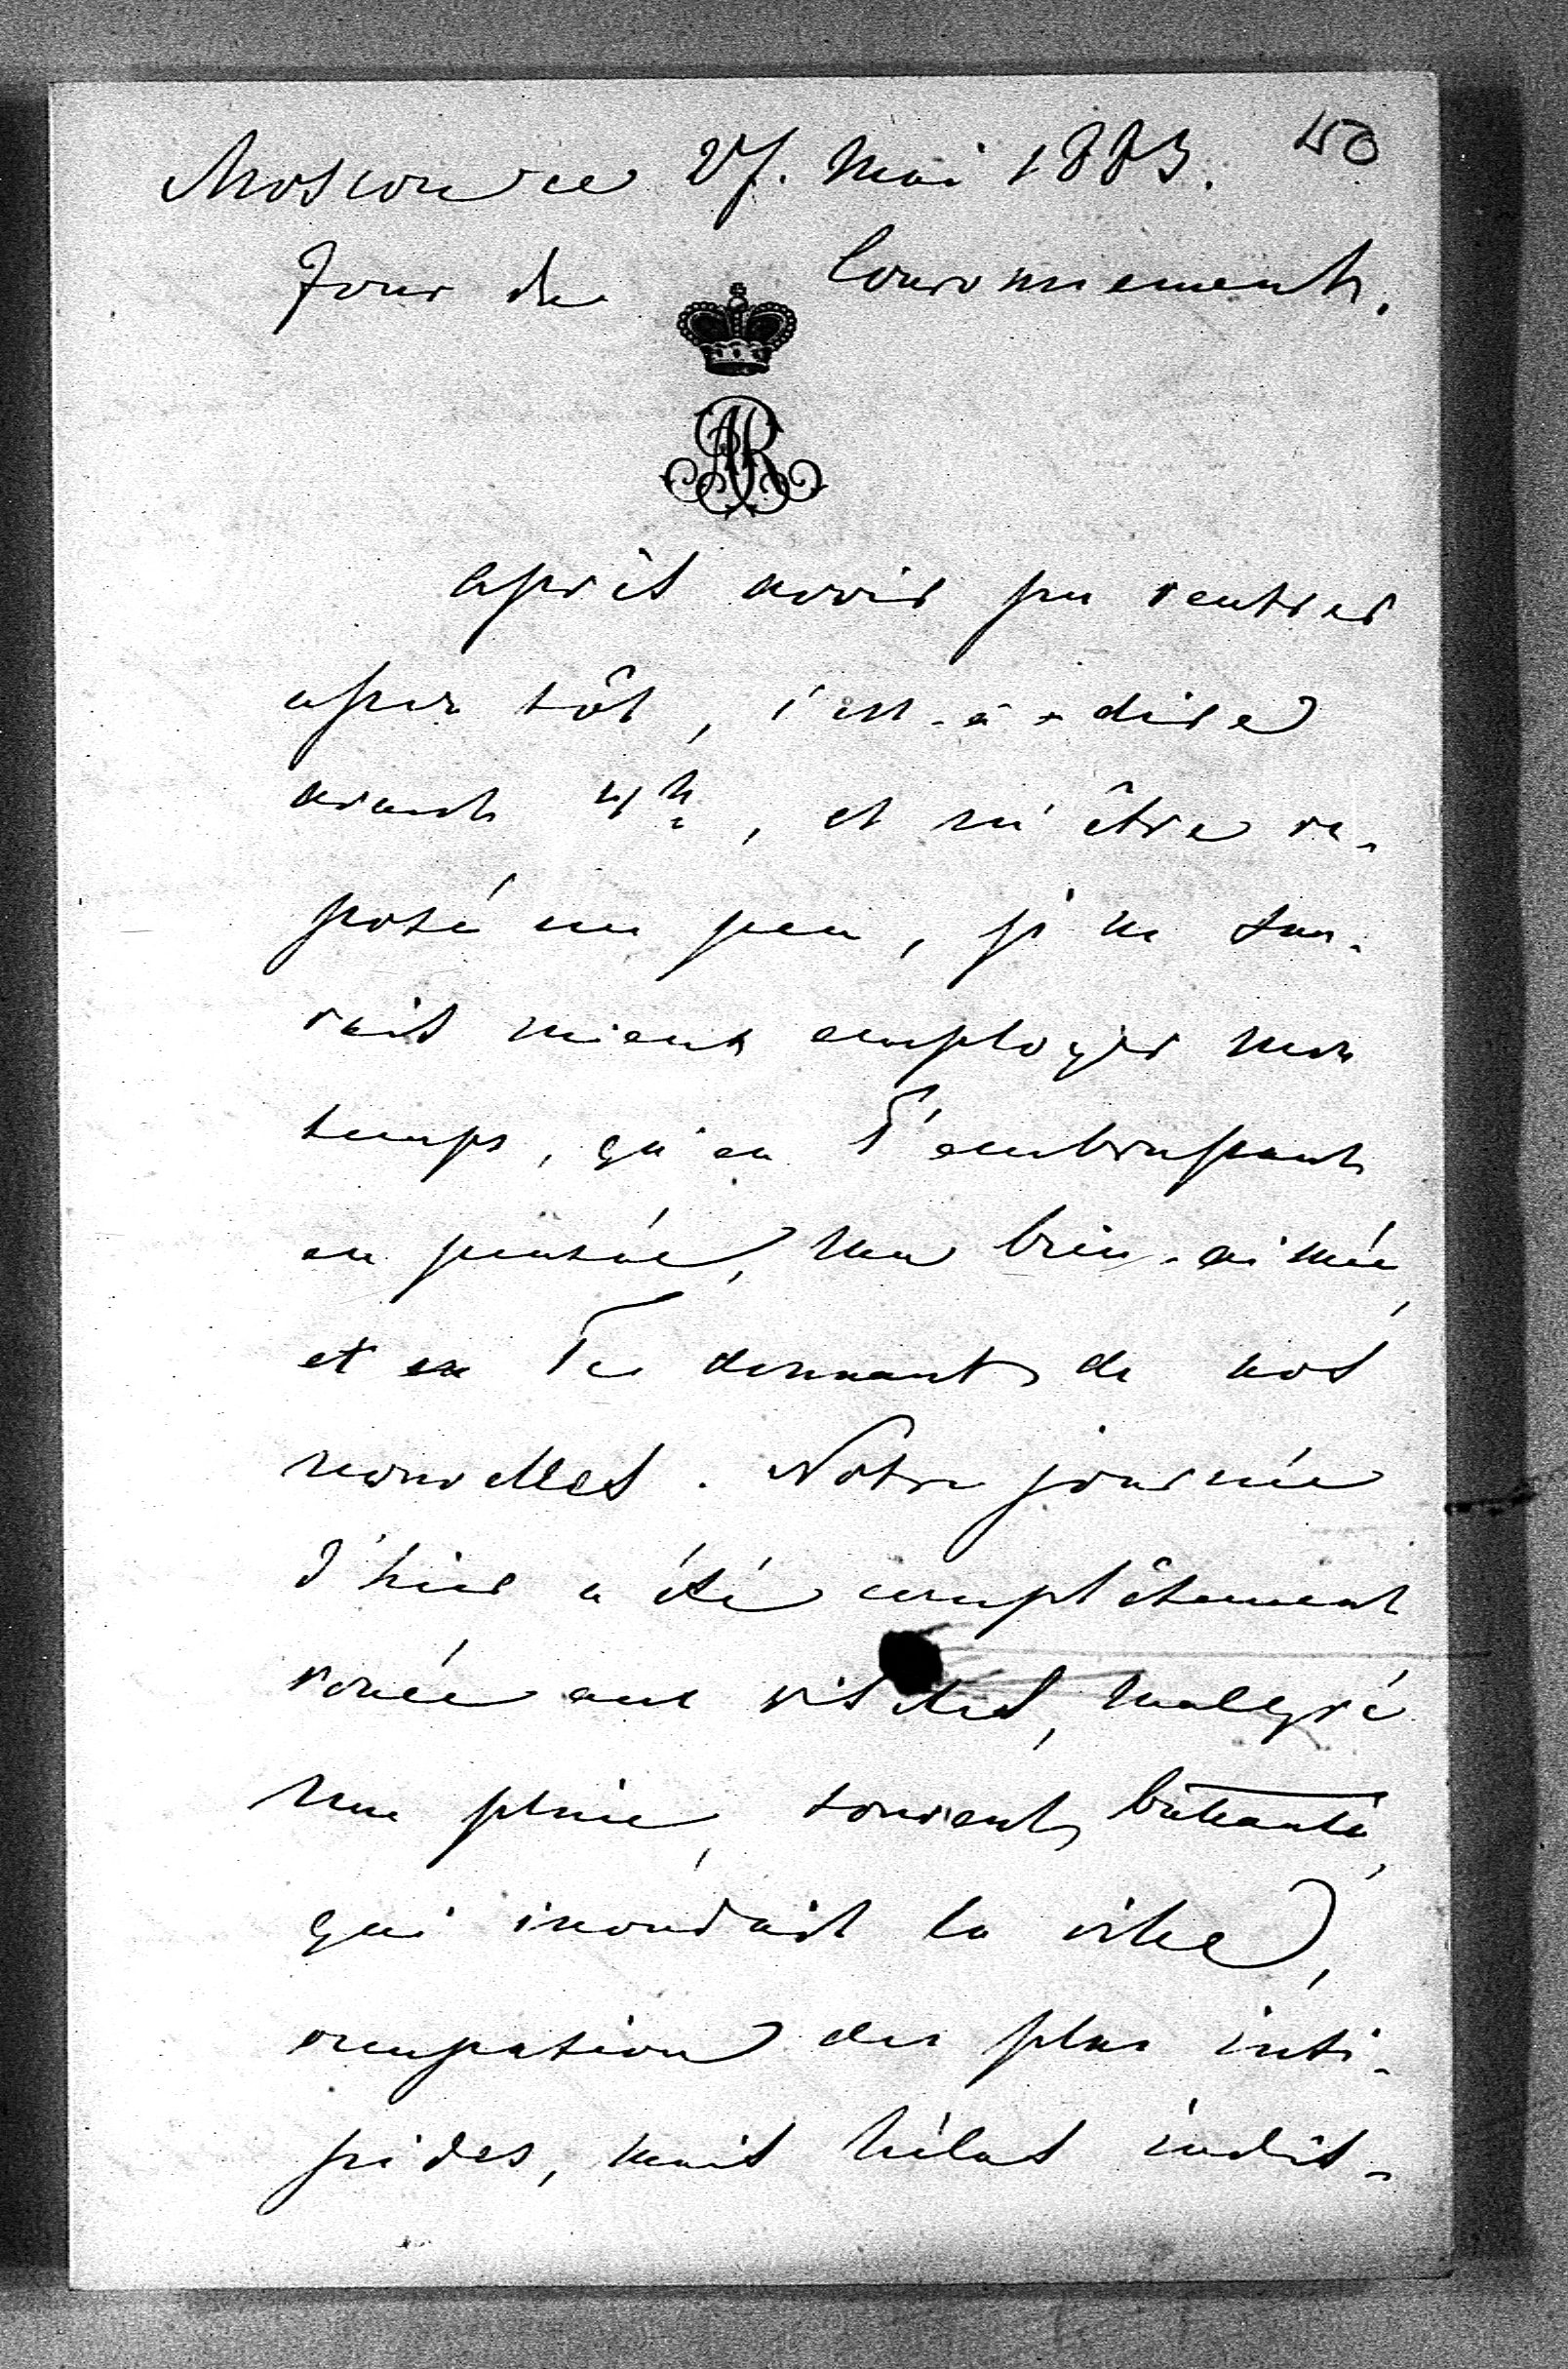 Moscou ce 27. Mai 1883. 150
Jour du Couronnement.
AR
Après avoir pu rentrer
assez tôt, c'est-à-dire
avant 4h, et m'être re-
posé un peu, je ne sau-
rais mieux employer mon
temps, qu'en T'embrassant
en pensée, ma bien-aimée,
et en Te donnant de nos
nouvelles. Notre journée
d'hier a été complètement
vouée aux visites, malgré
une pluie, souvent battante,
qui inondait la ville,
occupation des plus insi-
pides, mais hélas indis-